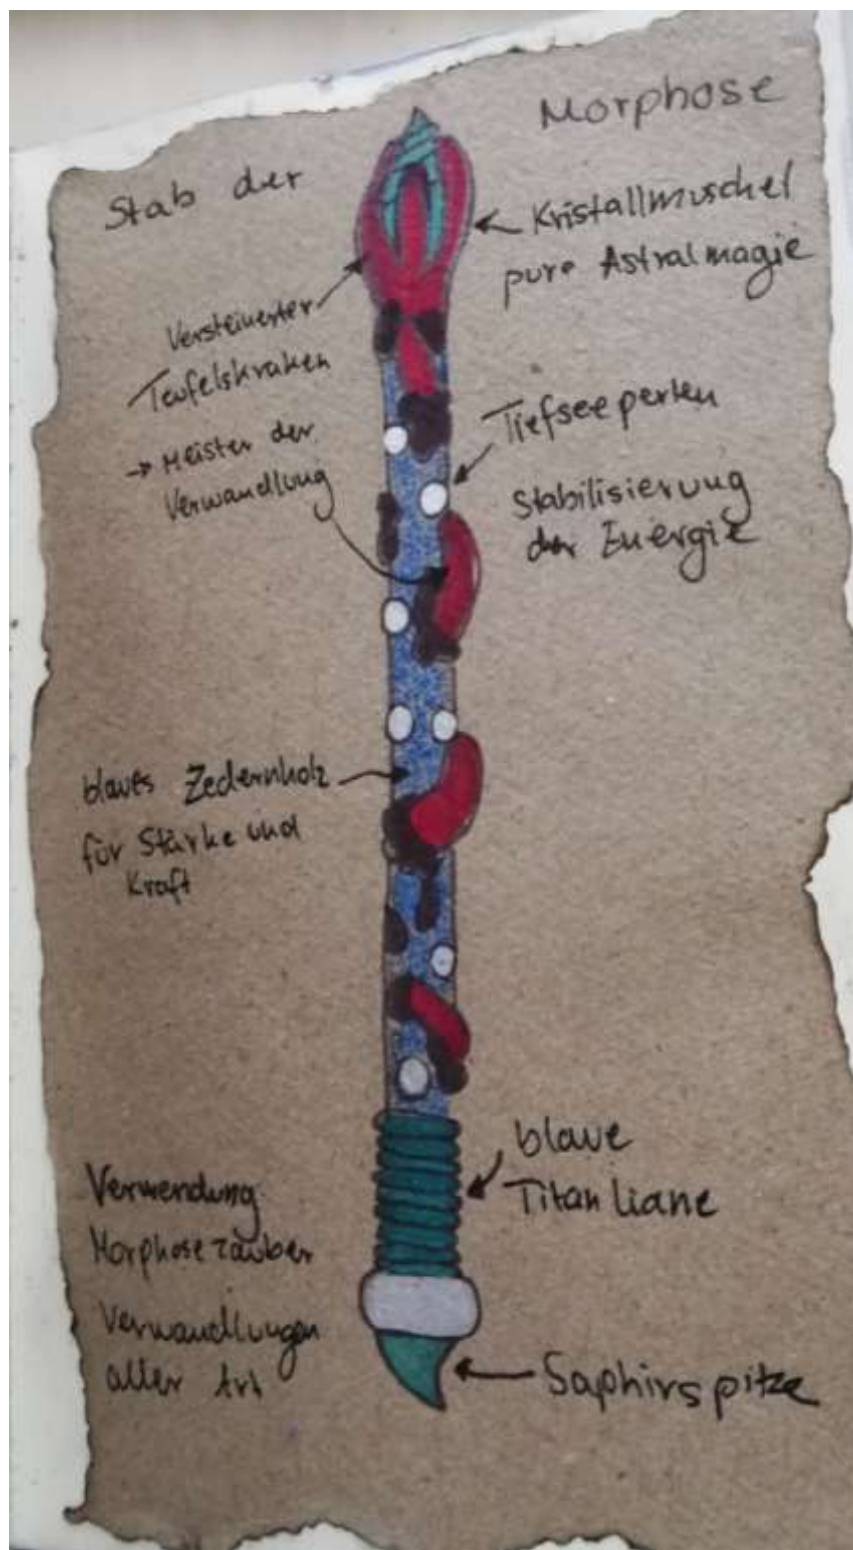 Stab der Morphose
Kristallmuschel
pure Astralmagie
Versteinerter
Teufelskraken
→ Meister der
Verwandlung
Tiefseeperlen
Stabilisierung
der Energie
blaues Zedernholz
für Stärke und
Kraft
blaue
Titan liane
Verwendung
Morphosezauber
Verwandlungen
aller Art
Saphirspitze